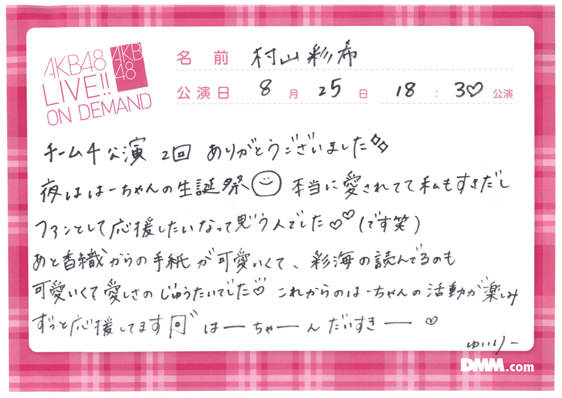 AKB48
LIVE!!
ON DEMAND
AKB
48
名前 村山彩希
公演日 8月25日 18:30公演
チーム4公演 2回 ありがとうございました
夜ははーちゃんの生誕祭 本当に愛されてて私もすきだし
ファンとして応援したいなって思う人でした♡♡(です笑)
あと香織からの手紙が可愛いくて、彩海の読んでるのも
可愛いくて愛しさのじゅうたいでした♡ これからのはーちゃんの活動が楽しみ
ずっと応援してます はーちゃーんだいすきー ♡
ゆいりー
DMM.com